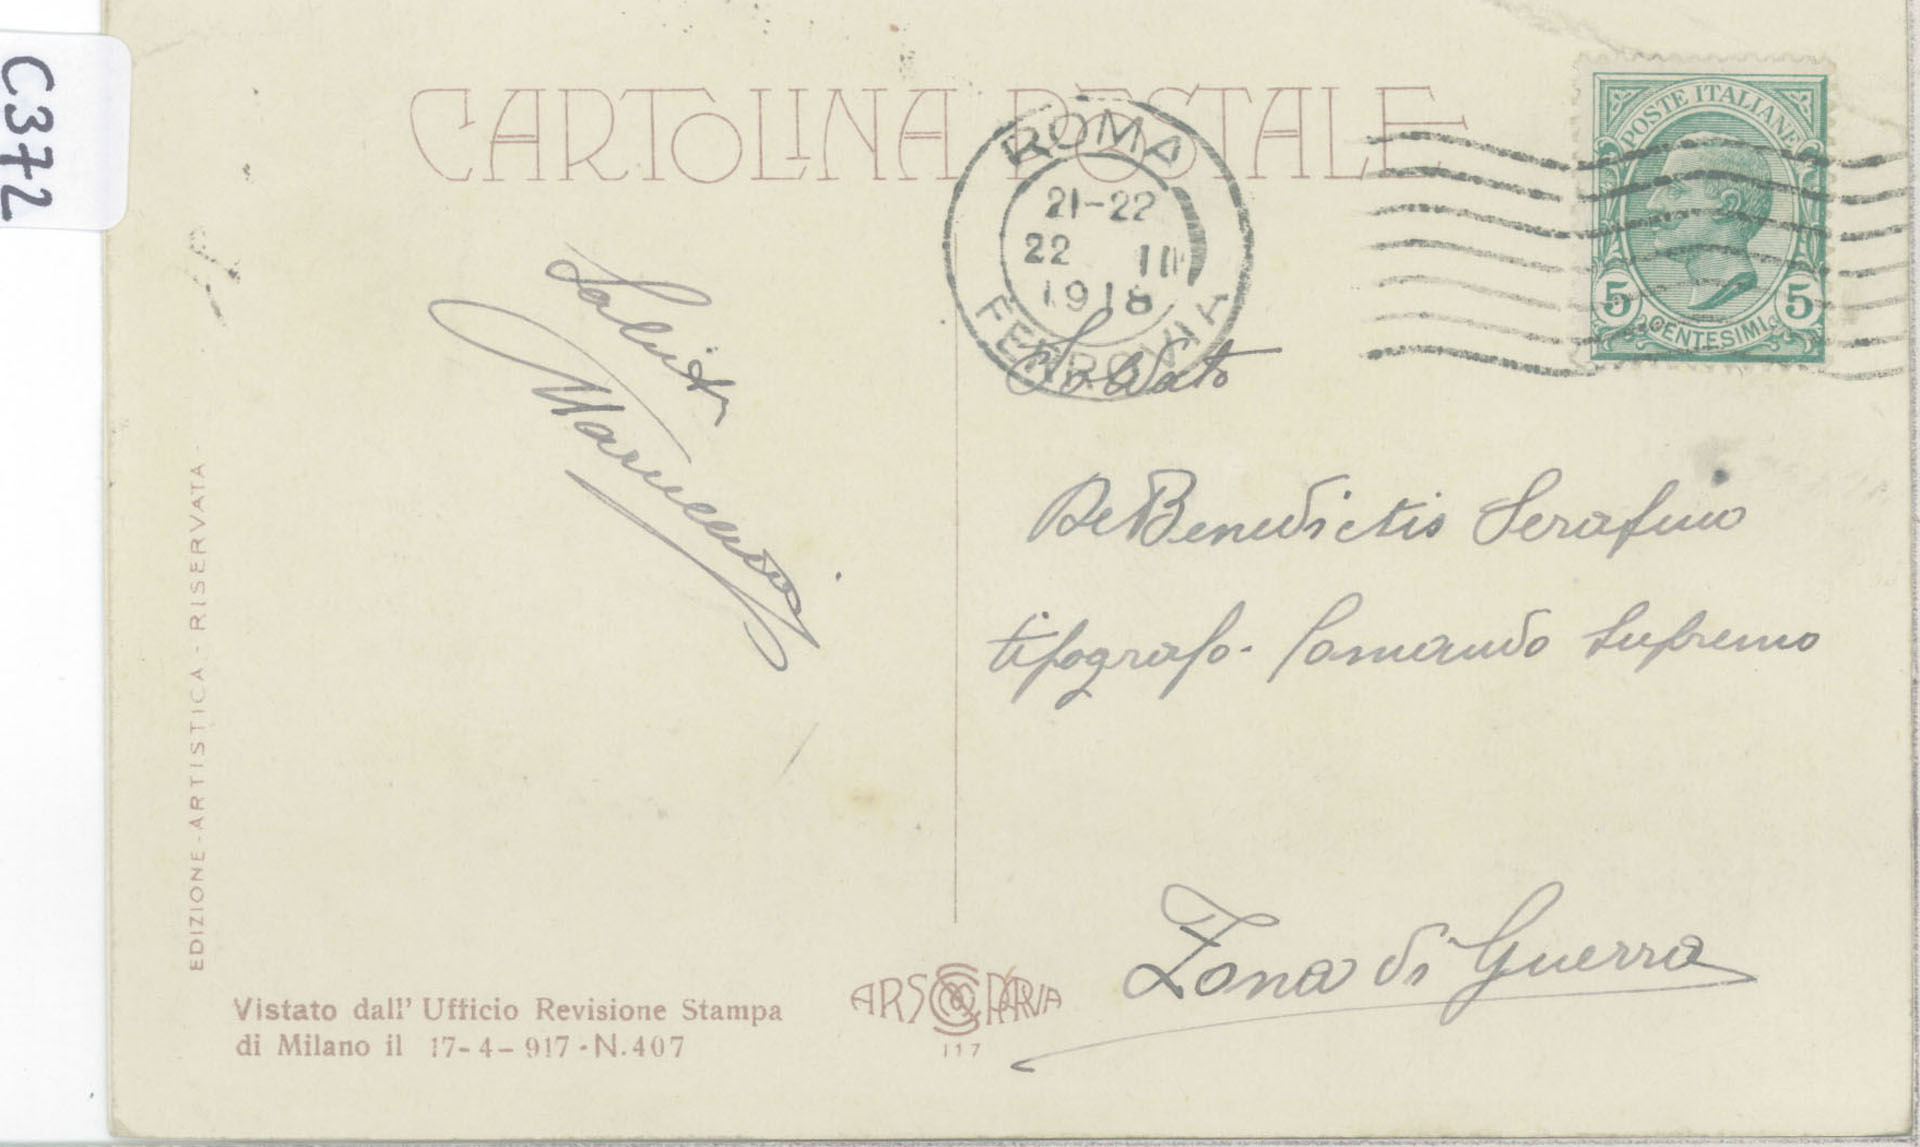 C372
CARTOLINA POSTALE
ROMA
21-22
22 III
1918
FERROVIA
POSTE ITALIANE
5 5
CENTESIMI
Saluti
Soldato
De Benedictis Serafino
tipografo - Comando Supremo
Zona di Guerra
EDIZIONE - ARTISTICA - RISERVATA -
Vistato dall' Ufficio Revisione Stampa
di Milano il 17-4-917 - N. 407
ARS PARVA
117